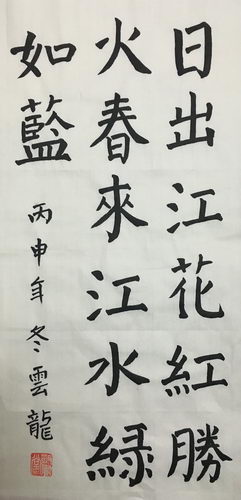 日出江花紅勝
火春來江水綠
如藍
丙申年冬雲龍